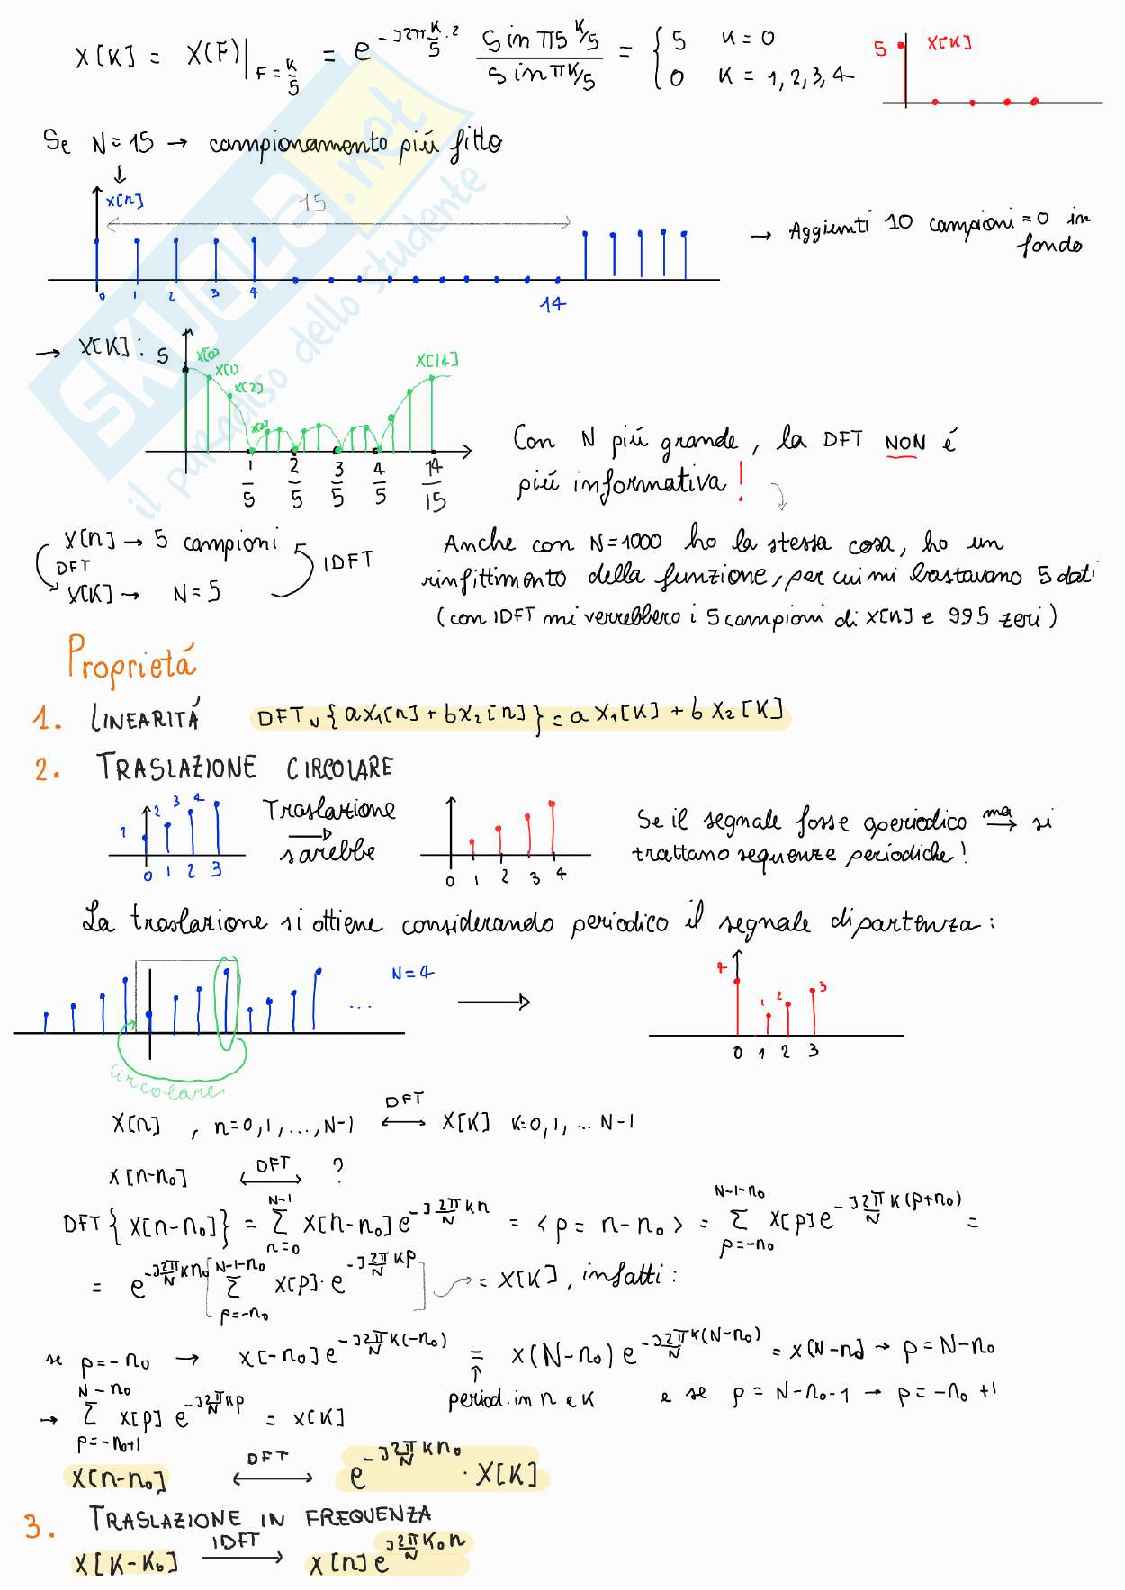 X[K] = X(F)|F=K/5 = e^-J2πK/5·2 sin π5 K/5 / sin πK/5 = { 5 K=0 5 X[K]
0 K = 1,2,3,4
Se N=15 → campionamento piú fitto
↓
X[n] 15
→ Aggiunti 10 campioni = 0 in fondo
0 1 2 3 4 14
→ X[K]: 5 X[0] X[1] X[2] X[14]
1/5 2/5 3/5 4/5 14/15
Con N piú grande, la DFT NON é
piú informativa!
X[n] → 5 campioni
DFT IDFT
X[K] → N=5
Anche con N=1000 ho la stessa cosa, ho un
rinfittimento della funzione, per cui mi bastavano 5 dati
(con IDFT mi verrebbero i 5 campioni di X[n] e 995 zeri)
Proprietá
1. LINEARITÁ DFT_N {aX1[n] + bX2[n]} = a X1[K] + b X2[K]
2. TRASLAZIONE CIRCOLARE
1 2 3 4
0 1 2 3
Traslazione
→
sarebbe
0 1 2 3 4
Se il segnale fosse aperiodico ma → si
trattano sequenze periodiche!
La traslazione si ottiene considerando periodico il segnale di partenza:
N=4 ... → 4 1 2 3
0 1 2 3
circolare
X[n] , n=0,1,...,N-1 ↔DFT X[K] K=0,1,... N-1
X[n-n0] ↔DFT ?
DFT{X[n-n0]} = Σ_{n=0}^{N-1} X[n-n0] e^-J2π/N Kn = <p = n-n0> = Σ_{p=-n0}^{N-1-n0} X[p] e^-J2π/N K(p+n0) =
= e^-J2π/N Kn0 [Σ_{p=-n0}^{N-1-n0} X[p]· e^-J2π/N Kp] → = X[K], infatti:
se p=-n0 → X[-n0] e^-J2π/N K(-n0) = X(N-n0) e^-J2π/N K(N-n0) = X[N-n0] → p=N-n0
↑
period. in n e K e se p = N-n0-1 → p=-n0+1
→ Σ_{p=-n0+1}^{N-n0} X[p] e^-J2π/N Kp = X[K]
X[n-n0] ↔DFT e^-J2π/N Kn0 · X[K]
3. TRASLAZIONE IN FREQUENZA
X[K-K0] →IDFT X[n] e^J2π/N K0n
SKUOLA.net
il paradiso dello studente